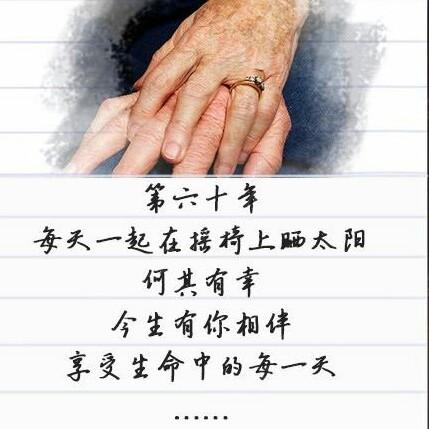 第六十年
每天一起在摇椅上晒太阳
何其有幸
今生有你相伴
享受生命中的每一天
......